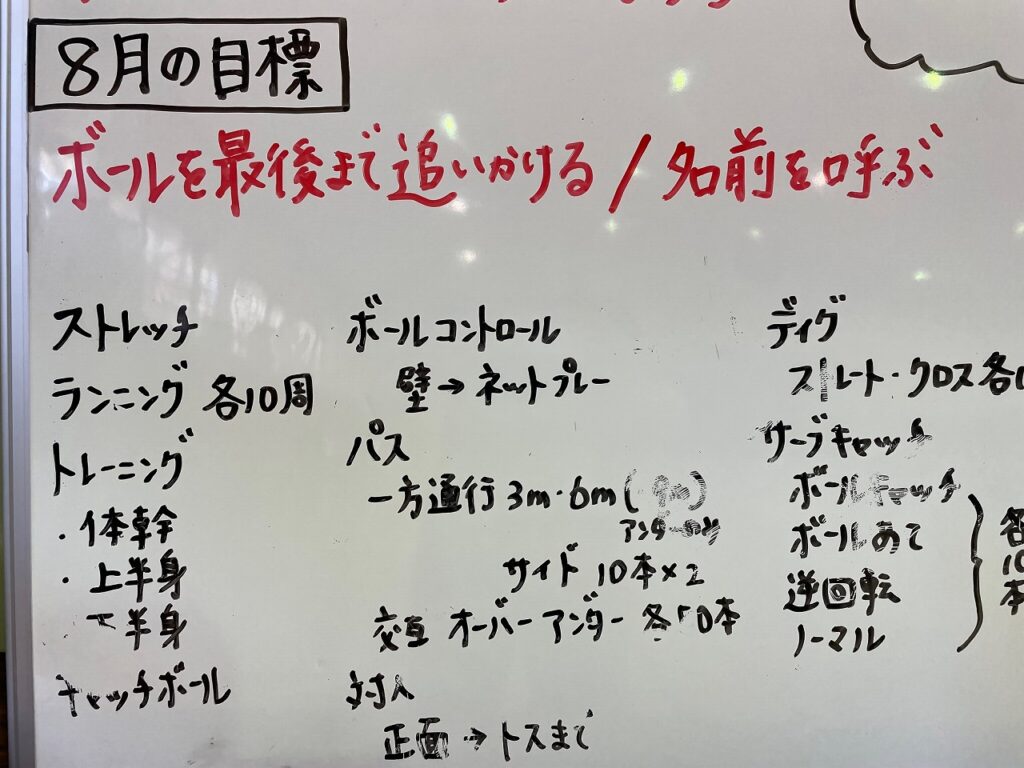 8月の目標
ボールを最後まで追いかける / 名前を呼ぶ
ストレッチ
ランニング 各10周
トレーニング
・体幹
・上半身
下半身
キャッチボール
ボールコントロール
壁→ネットプレー
パス
一方通行 3m・6m (9m)
アンダーのみ
サイド 10本×2
交互 オーバーアンダー 各10本
対人
正面→トスまで
ディグ
ストレート・クロス各
サーブキャッチ
ボールキャッチ
ボールあて
逆回転
ノーマル
各
10
本